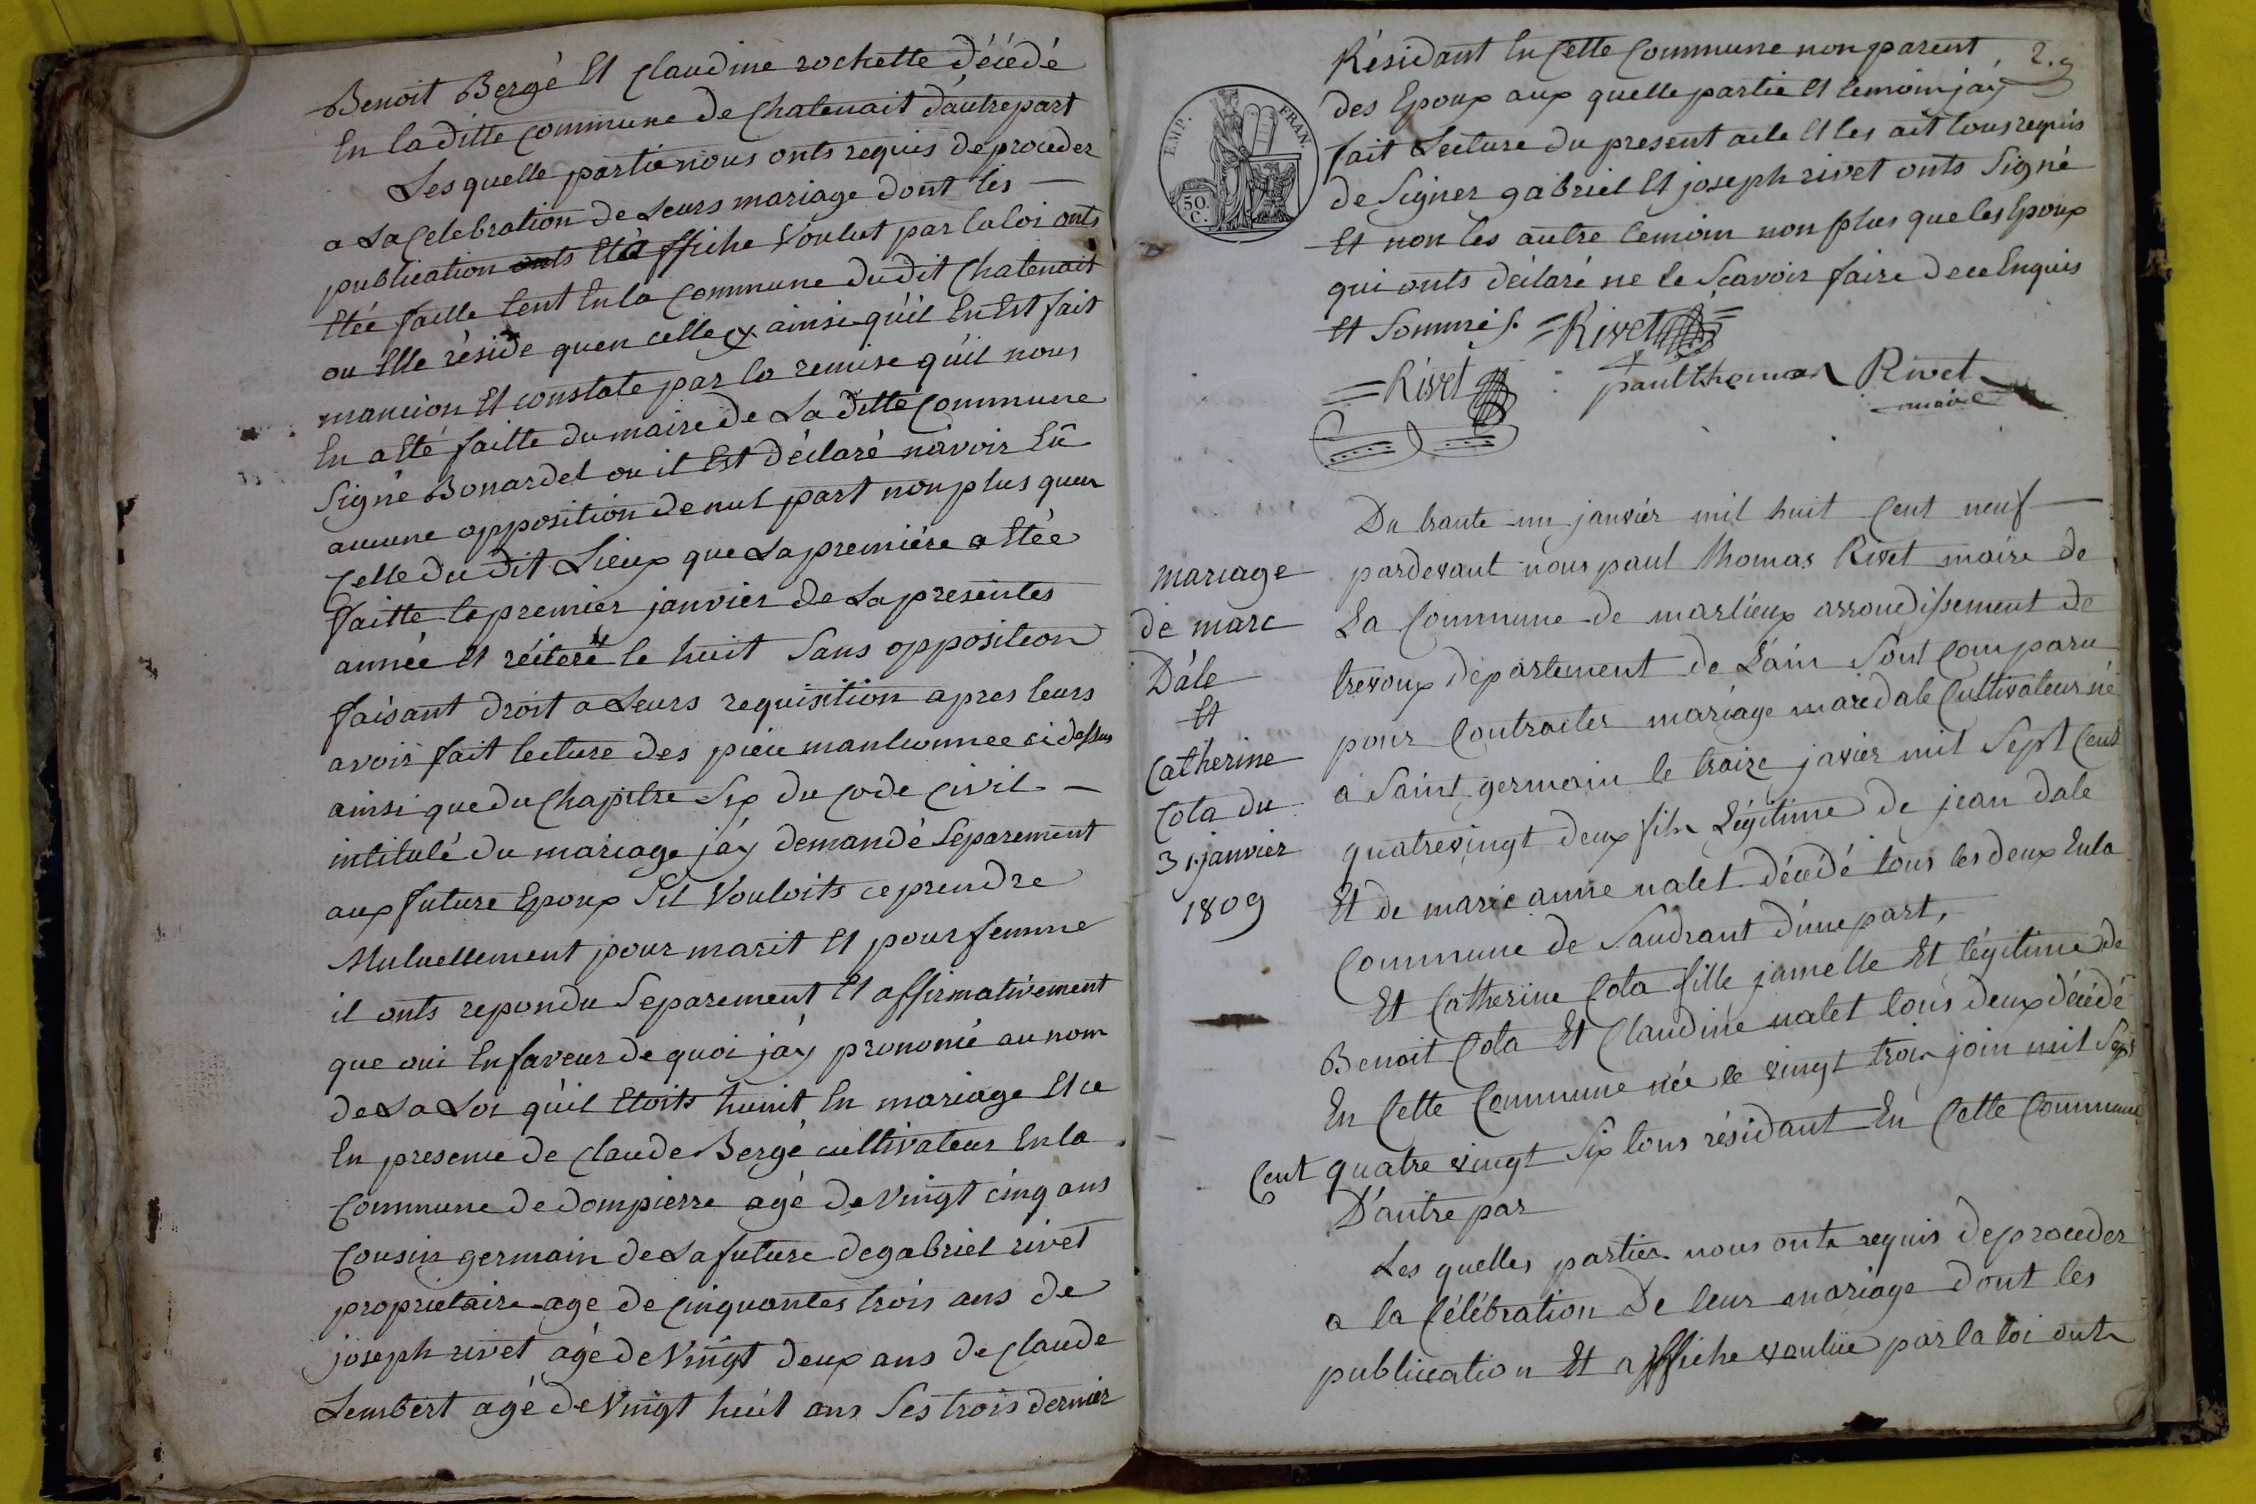 Benoit Bergé Et Claudine rochette décédé
En la ditte commune de Chatenait d'autre part
Les quelle partie nous onts requis de proceder
a La Celebration de Leurs mariage dont les —
publication onts Et affiche Voulut par la loi onts
Etée faitte tent En la Commune du dit Chatenait
ou Elle réside quen celle cy ainsi qu'il En Est fait
mancion Et constate par la remise qu'il nous
En a Eté faitte du maire de La ditte Commune
Signé Bonardel ou il Est déclaré n'avoir Eû
aucune opposition de nul part non plus quen
Celle du dit Lieux que La premiére a Etée
faitte le premier janvier de La presentes
année Et réiteré le huit Sans opposition
faisant droit a Leurs requisition apres leurs
avoir fait lecture des piéce mantionnee ci dessus
ainsi que du Chapitre Six du Code Civil —
intitulé du mariage j'áy demandé Separement
aux future Epoux S'il Vouloits ce prendre
Mutuellement pour marit Et pour femme
il onts repondu Separement Et affirmativement
que oui En faveur de quoi j'áy prononcé au nom
de La Loi qu'il Etoits hunit En mariage Et ce
En presence de Claude Bergé cultivateur En la
Commune de Dompierre agé de Vingt cinq ans
Cousin germain de La future de gabriel rivet
proprietaire age de Cinquantes trois ans de
joseph rivet agé de Vingt deux ans de Claude
Lembert agé de Vingt huit ans Ses trois dernier
Résidant En Cette Commune non parent
des Epoux aux quelle partie Et temoin j'áy
fait Lecture du present acte Et les ait tous requis
de Signer gabriel Et joseph rivet onts Signé
Et non les autre temoin non plus que les Epoux
qui onts déclaré ne le Scavoir faire de ce Enquis
Et Sommés. = Rivet =
= Rivet : paul thomas Rivet
maire
EMP. FRAN.
50. C.
mariage
de marc
Dále
Et
Catherine
Cota du
31 janvier
1809
Du trante un janviér mil huit Cent neuf —
pardevant nous paul thomas Rivet maire de
La Commune de marlieux arrondissement de
trevoux département de L'ain Sont Comparu
pour Contracter mariage marc dale Cultivateur né
a Saint germain le traize javier mil Sept Cent
quatrevingt deux fils Légitime de jean dale
Et de marie anne nalet décédé tous les deux En la
Commune de Sandrant d'une part,
Et Catherine Cota fille jumelle Et légitime de
Benoit Cota Et Claudine nalet tous deux décédé
En Cette Commune née le vingt trois join mil Sept
Cent quatre vingt Six tous résidant En Cette Commune
D'autre par
Les quelles parties nous onts requis de proceder
a la Célébration De leur mariage dont les
publication Et affiche voulue par la loi onts